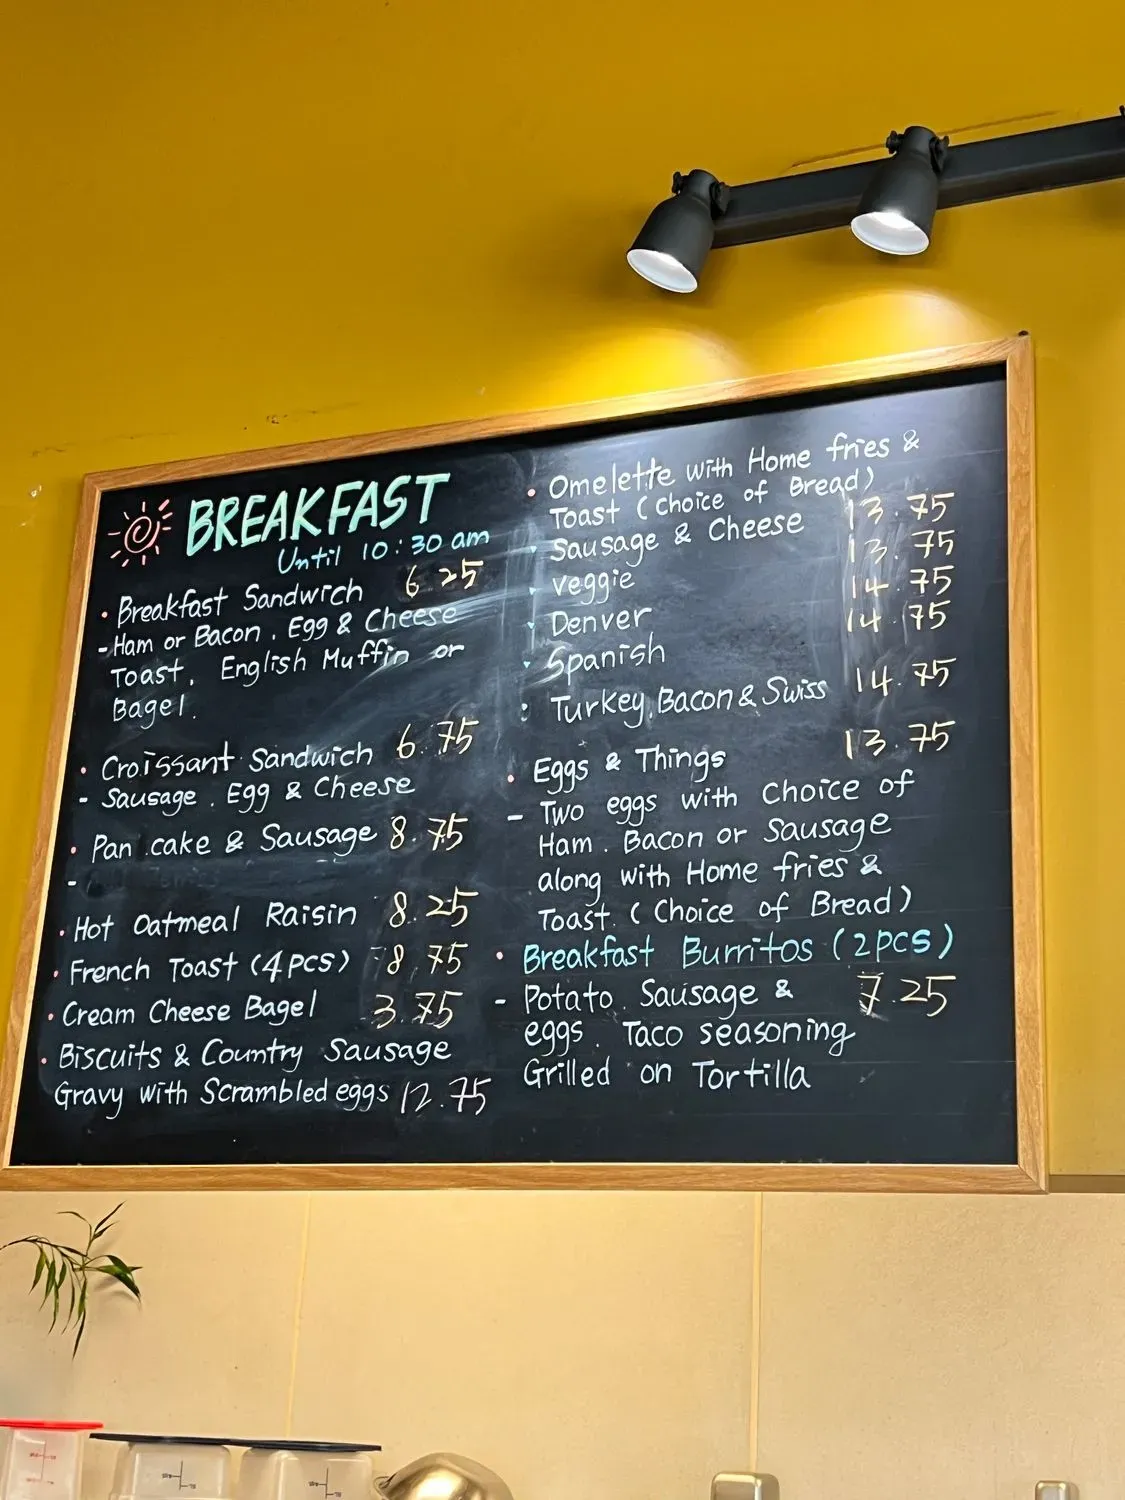 BREAKFAST
Until 10:30 am
• Breakfast Sandwich 6.25
- Ham or Bacon. Egg & Cheese
Toast. English Muffin or
Bagel.
• Croissant Sandwich 6.75
- Sausage. Egg & Cheese
• Pan cake & Sausage 8.75
-
• Hot Oatmeal Raisin 8.25
• French Toast (4pcs) 8.75
• Cream Cheese Bagel 3.75
• Biscuits & Country Sausage
Gravy with Scrambled eggs 12.75
• Omelette with Home fries &
Toast (Choice of Bread)
Sausage & Cheese 13.75
Veggie 13.75
Denver 14.75
Spanish 14.75
Turkey, Bacon & Swiss 14.75
• Eggs & Things 13.75
- Two eggs with Choice of
Ham. Bacon or Sausage
along with Home fries &
Toast. (Choice of Bread)
• Breakfast Burritos (2pcs)
- Potato. Sausage & 7.25
eggs. Taco seasoning
Grilled on Tortilla